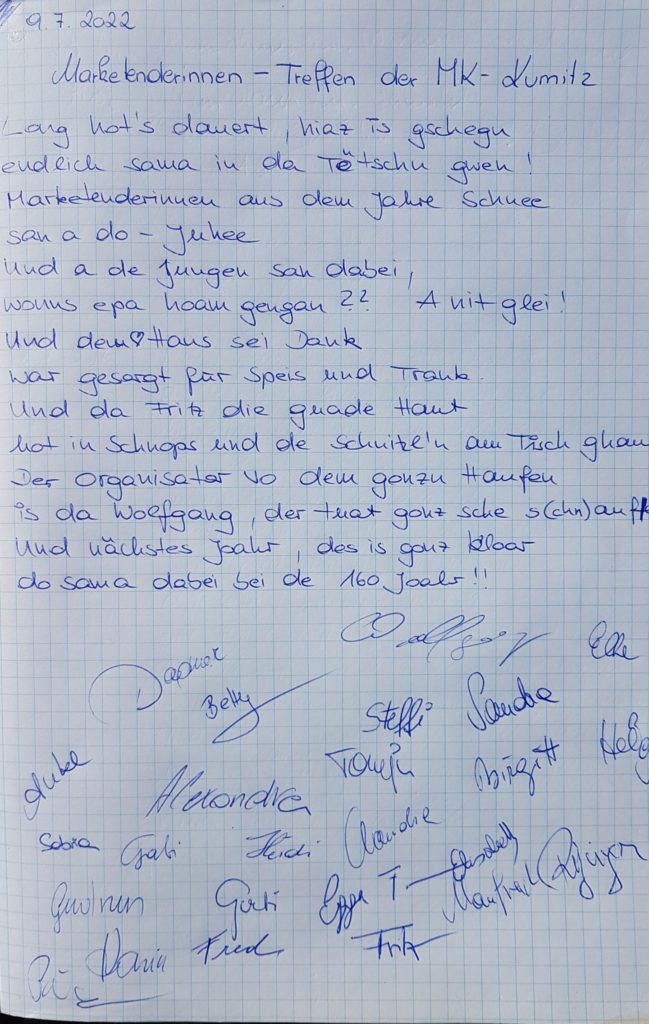 9.7.2022
Marketenderinnen - Treffen der MK-Kumitz
Lang hot's dauert, hiaz is gschegn
endlich sama in da Tëtschn gwen!
Marketenderinnen aus dem Jahre Schnee
san a do - Juhee
Und a de Jungen san dabei,
wonns epa hoam gengan ?? A nit glei!
Und dem ♡ Haus sei Dank
war gesorgt für Speis und Trank.
Und da Fritz die guade Haut
hot in Schnops und de Schnitzl'n am Tisch ghaut
Der Organisator vo dem gonzn Haufen
is da Wolfgang, der tuat gonz sche s(chn)aufn
Und nächstes Joahr, des is gonz kloar
do sama dabei bei de 160 Joahr!!
Wolfgang Elke
Dagmar
Betty Steffi Sandra
Tanja Birgitt Helg
Alexandra
Sabina Gabi Heidi Claudia
Gudrun Gerti Egger T Elisabeth Manfred
Maria Fred Fritz